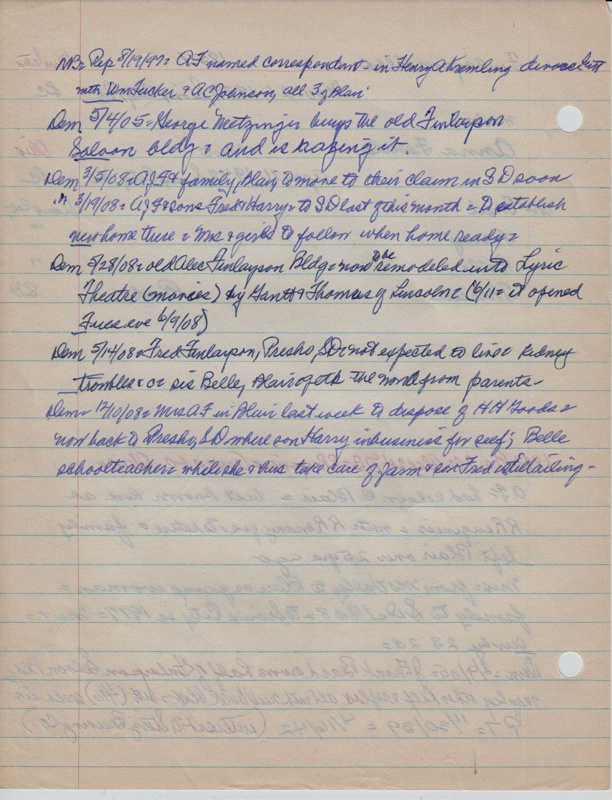 Rep 8/19/97= AF named correspondent in Henry A Kremling divorce
with Wm Tucker & AC Johnson, all of Blair
Dem 5/4/05= George Metzinger buys the old Finlayson
Saloon bldg = and is razing it.
Dem 3/5/08= AF & family, Blair to move to their claim in SD soon
" 3/19/08= AF & sons Fred & Harry= to SD last of this month = to establish
new home there = Mrs & girls to follow when home ready=
Dem 5/28/08= old Alec Finlayson Bldg= now to be remodeled into Lyric
Theatre (movies) by Gantt & Thomas of Lincoln= (6/11= it opened
Tues eve 6/9/08)
Dem 5/14/08= Fred Finlayson, Presho, SD= not expected to live= kidney
trouble= sis Belle, Blair the word from parents-
Dem= 12/10/08= Mrs AF in Blair last week to dispose of HH Goods=
now back to Presho, SD where son Harry in business for self; Belle
schoolteacher= while she & hus take care of farm & son Fred still ailing-